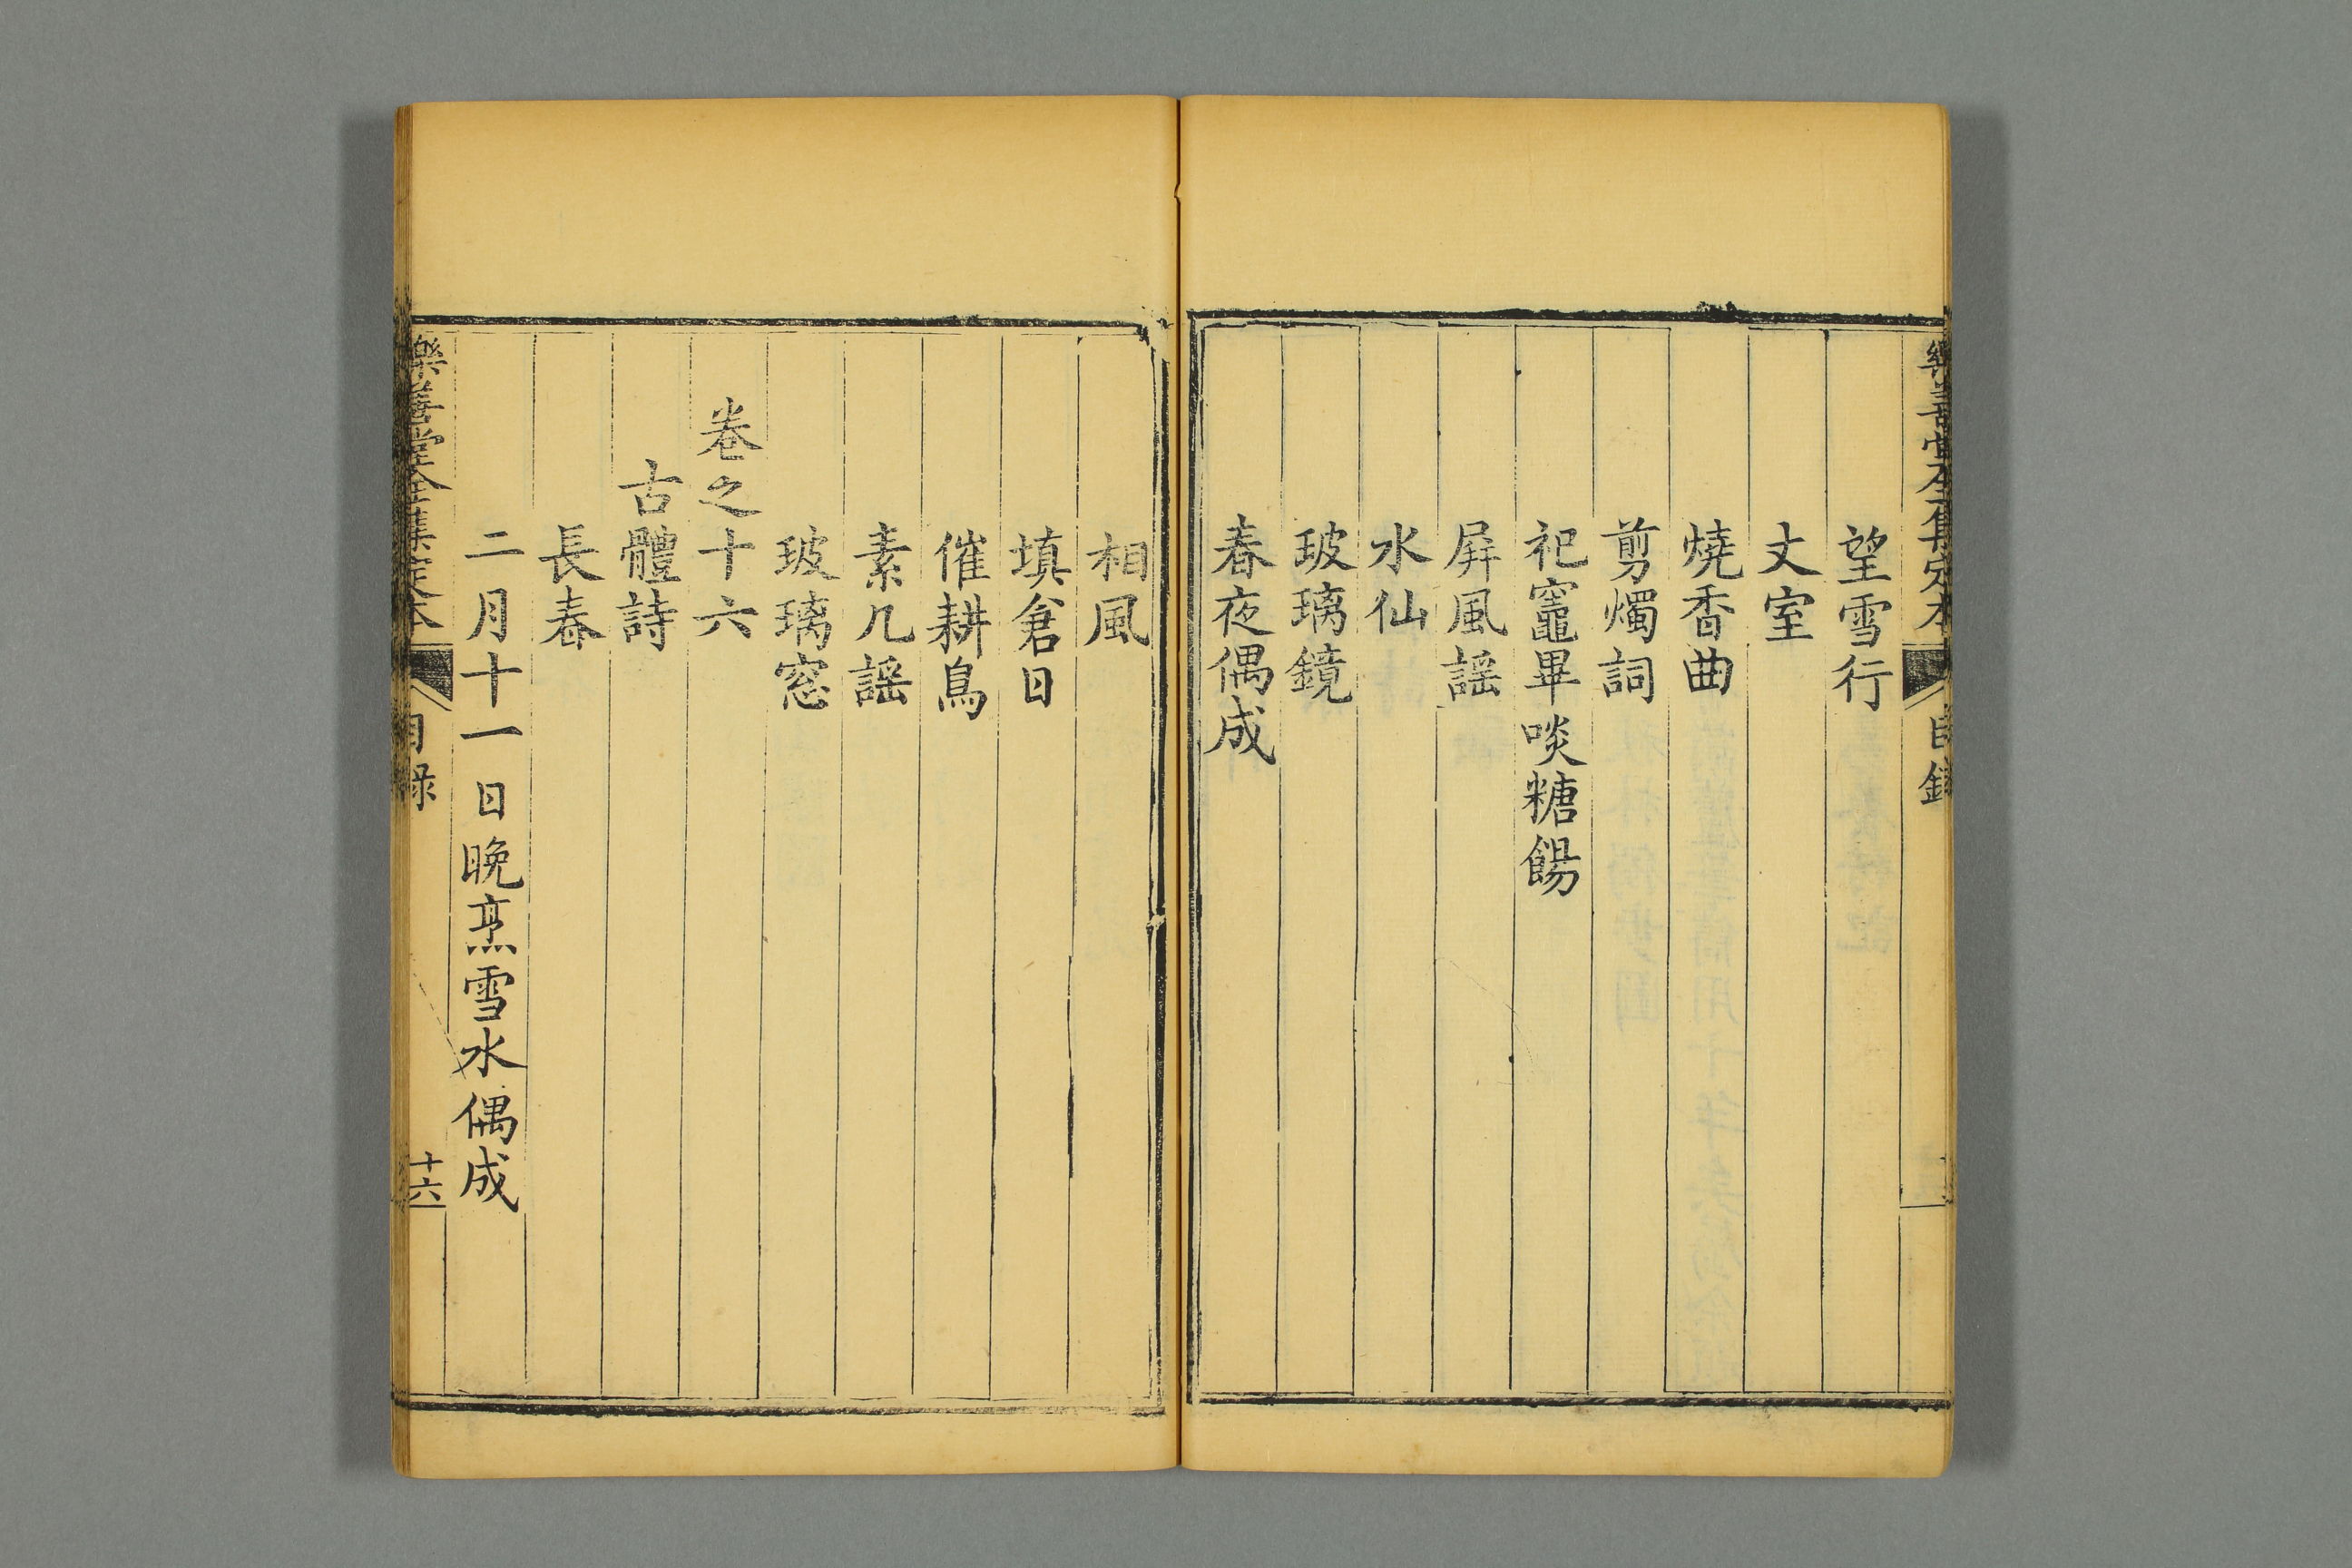 樂善堂全集定本 目錄
望雪行
丈室
燒香曲
剪燭詞
祀竈畢啖糖餳
屏風謡
水仙
玻璃鏡
春夜偶成
相風
填倉日
催耕鳥
素几謡
玻璃窓
卷之十六
古體詩
長春
二月十一日晚烹雪水偶成
樂善堂全集定本 目錄 十六